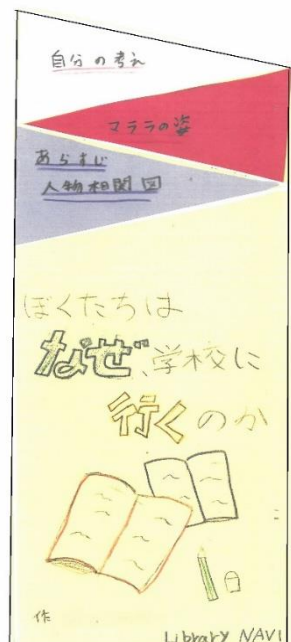 自分の考え
マララの姿
あらすじ
人物相関図
ぼくたちは
なぜ、学校に
行くのか
作
Library NAVI